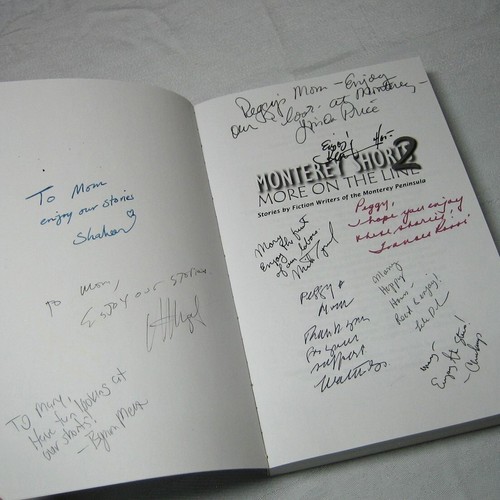 To Mom
enjoy our stories
Shahan
To Mom,
Enjoy our stories.
To Mary,
Have fun looking at
our shorts!
- Byron Merritt
Peggy's Mom - Enjoy
our look at Monterey -
Linda Price
Enjoy!
MONTEREY SHORTS 2
MORE ON THE LINE
Stories by Fiction Writers of the Monterey Peninsula
Peggy,
I hope you enjoy
these stories!
Frances Rossi
Mary,
Enjoy the fruit
of our labors.
Peggy &
Mom
Thank you
for your
support
Mary
Happy
Read & enjoy!
Enjoy the stories!